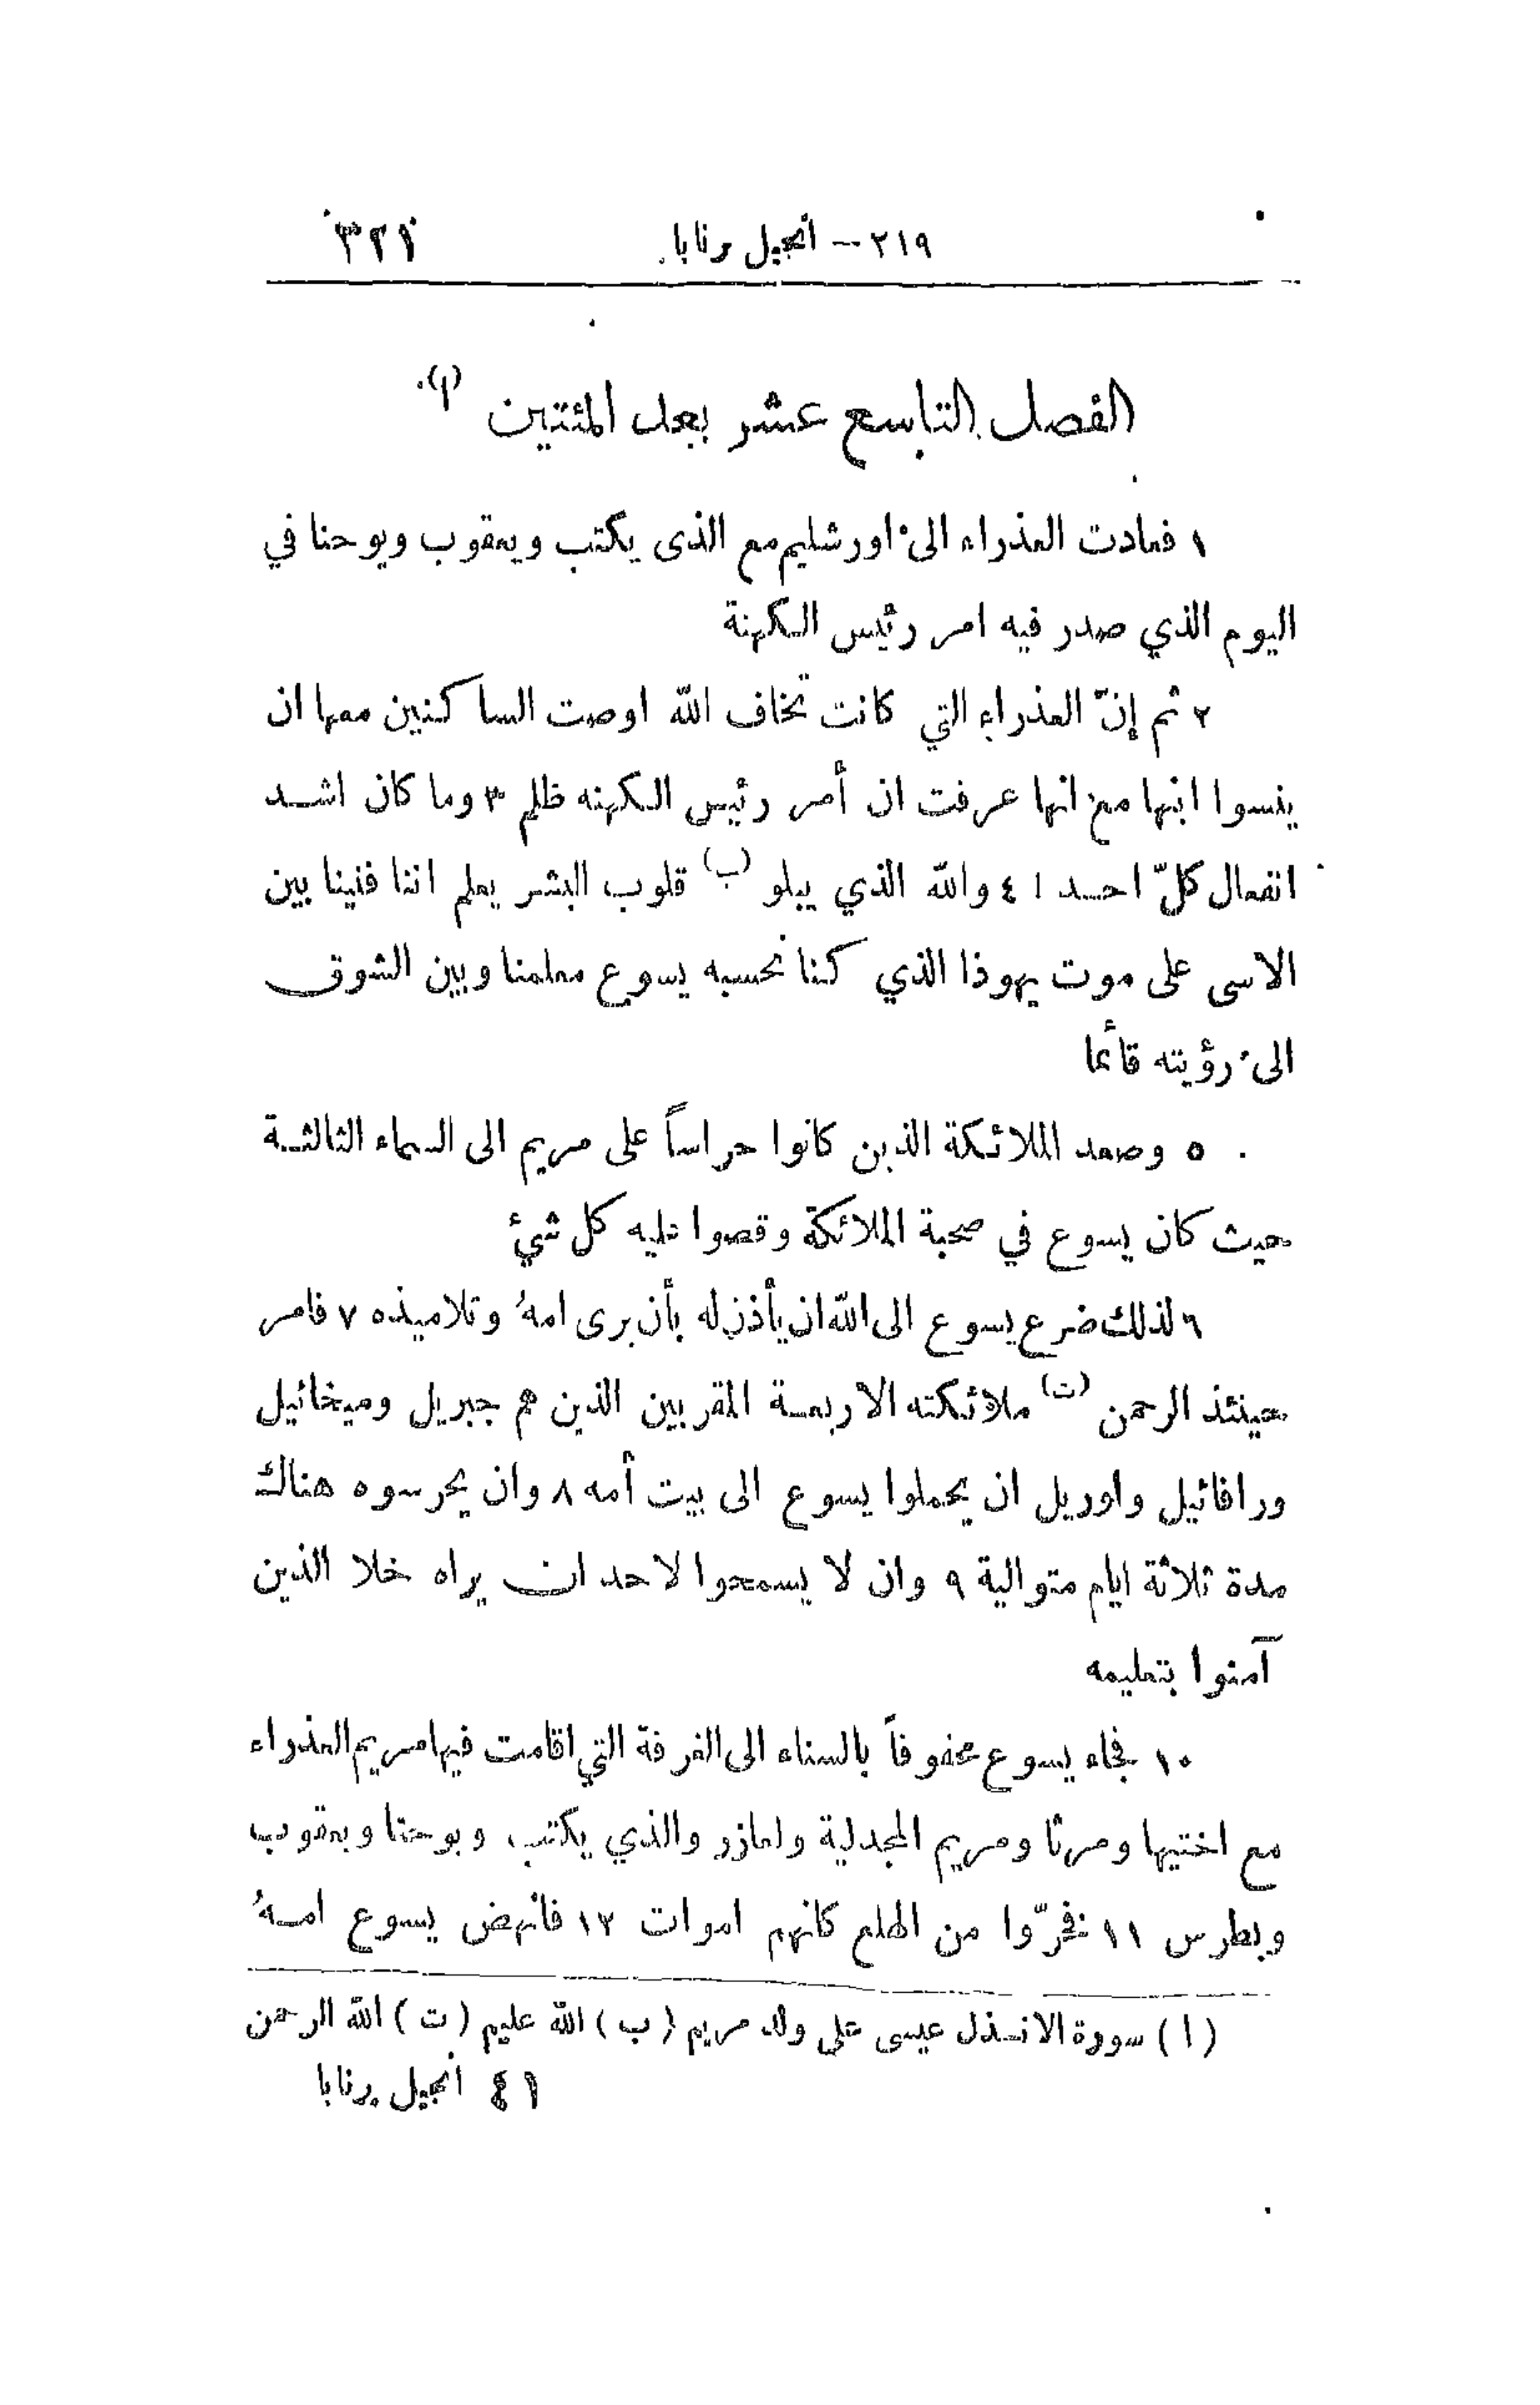 ٢١٩ — أنجيل برنابا. ٣٢١
الفصل التاسع عشر بعد المئتين (ا)
١ فعادت العذراء الى اورشليم مع الذى يكتب ويعقوب ويوحنا في
اليوم الذي صدر فيه امر رئيس الكهنة
٢ ثم إنّ العذراء التي كانت تخاف الله اوصت الساكنين معها ان
ينسوا ابنها مع انها عرفت ان أمر رئيس الكهنه ظلم ٣ وما كان اشد
انفعال كلّ احد ! ٤ والله الذي يبلو (ب) قلوب البشر يعلم اننا فنينا بين
الاسى على موت يهوذا الذي كنا نحسبه يسوع معلمنا وبين الشوق
الى رؤيته قائما
٥ وصعد الملائكة الذين كانوا حراساً على مريم الى السماء الثالثة
حيث كان يسوع في صحبة الملائكة وقصوا عليه كل شيْ
٦ لذلك ضرع يسوع الى الله ان يأذن له بأن يرى امهُ وتلاميذه ٧ فامر
حينئذ الرحمن (ت) ملائكته الاربعة المقربين الذين هم جبريل وميخائيل
ورافائيل واوريل ان يحملوا يسوع الى بيت أمه ٨ وان يحرسوه هناك
مدة ثلاثة ايام متوالية ٩ وان لا يسمحوا لاحد ان يراه خلا الذين
آمنوا بتعليمه
١٠ فجاء يسوع محفوفاً بالسناء الى الغرفة التي اقامت فيها مريم العذراء
مع اختيها ومرثا ومريم المجدلية ولعازر والذي يكتب ويوحنا ويعقوب
وبطرس ١١ فخرّوا من الهلع كانهم اموات ١٢ فأنهض يسوع امهُ
(ا) سورة الانزل عيسى على ولد مريم (ب) الله عليم (ت) الله الرحمن
٤١ أنجيل برنابا